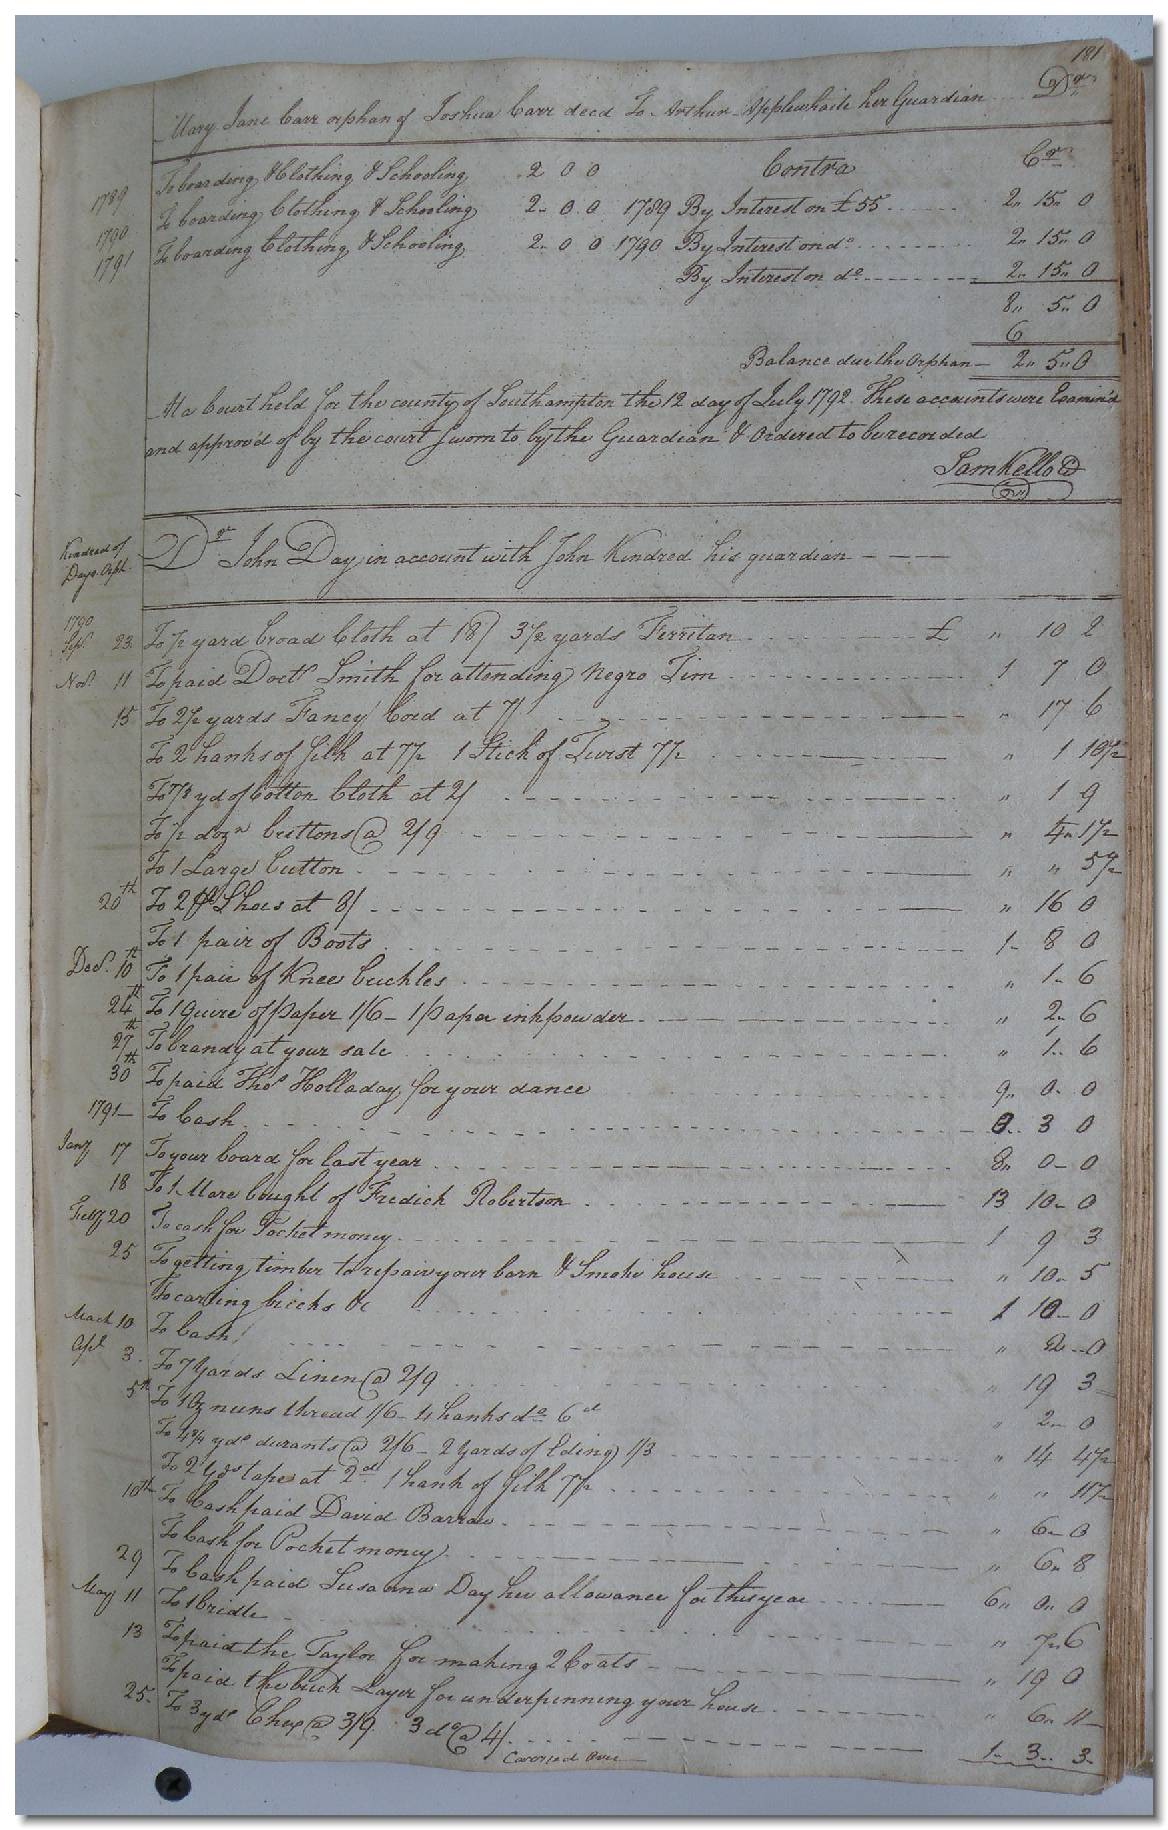 181
Mary Jane Carr orphan of Joshua Carr decd To Arthur Applewhaite her Guardian Dr
1789 To boarding Clothing & Schooling 2 0 0 Contra Cr
1790 To boarding Clothing & Schooling 2 0 0 1789 By Interest on £55 2 15 0
1791 To boarding Clothing & Schooling 2 0 0 1790 By Interest on do 2 15 0
By Interest on do 2 15 0
8 5 0
6
Balance due the Orphan 2 5 0
At a Court held for the county of Southampton the 12 day of July 1792. These accounts were Examin'd
and approv'd of by the court Sworn to by the Guardian & Ordered to be recorded
Sam Kello
Kindred of
Days Orph.
Dr John Day in account with John Kindred his guardian
1790
Sep. 23 To ½ yard broad Cloth at 18/ 3½ yards Ferritan £ " 10 2
Nov. 11 To paid Doctr Smith for attending Negro Tim 1 7 0
15 To 2½ yards Fancy Cord at 7/ " 17 6
To 2 hanks of Silk at 7½ 1 Stick of Twist 7½ " 1 10½
To 7/8 yd of Cotton Cloth at 2/ " 1 9
To ½ dozn buttons @ 2/9 " 4 1½
To 1 Large button " " 5½
20th To 2 pr Shoes at 8/ " 16 0
To 1 pair of Boots 1 8 0
Decr. 10th To 1 pair of Knee buckles " 1 6
24th To 1 Quire of paper 1/6 - 1 paper inkpowder " 2 6
27th To brandy at your sale " 1 6
30th To paid Thos Holladay for your dance 9 0 0
1791 To Cash 0 3 0
Jany 17 To your board for last year 8 0 0
18 To 1 Mare bought of Fredick Robertson 13 10 0
Feby 20 To cash for Pocket money 1 9 3
25 To getting timber to repair your barn & Smoke house " 10 5
To carting bricks &c 1 10 0
March 10 To Cash " 2 0
Apl 3 To 7 Yards Linen @ 2/9 " 19 3
5th To 1 Oz nuns thread 1/6 - 4 hanks do 6d " 2 0
To 4¾ yds durants @ 2/6 - 2 yards of Eding 1/3 " 14 4½
To 2 yds tape at 2d 1 hank of Silk 7½ " " 11½
10th To Cash paid David Barrow " 6 0
To Cash for Pocket money " 6 8
29 To Cash paid Susanna Day her allowance for this year 6 0 0
May 11 To 1 bridle " 7 6
13 To paid the Taylor for making 2 Coats " 19 0
To paid the brick Layer for underpinning your house " 6 11
25 To 3 yds @ 3/9 3 do @ 4/ 1 3 3
Carried Over